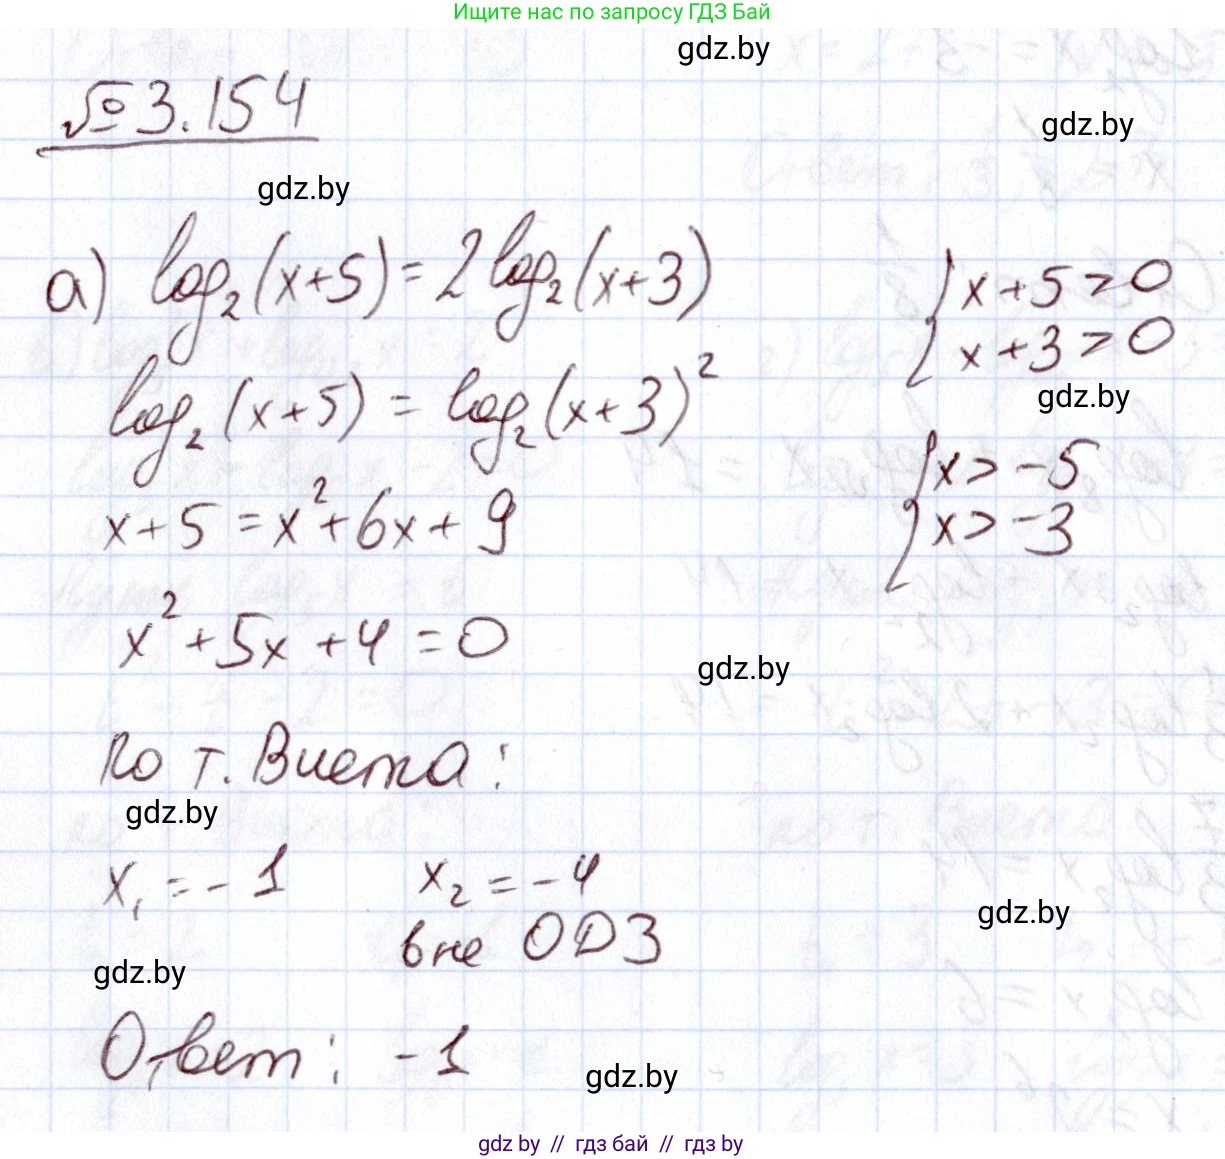 Ищите нас по запросу ГДЗ Бай
gdz.by
№3.154
gdz.by
gdz.by
а) log₂(x+5) = 2log₂(x+3)
{ x+5>0
x+3>0
gdz.by
log₂(x+5) = log₂(x+3)²
{ x>-5
x>-3
x+5 = x²+6x+9
x²+5x+4=0
gdz.by
По т. Виета:
gdz.by
x₁=-1 x₂=-4
вне ОДЗ
gdz.by
gdz.by
Ответ: -1
gdz.by
gdz by // гдз бай // гдз by